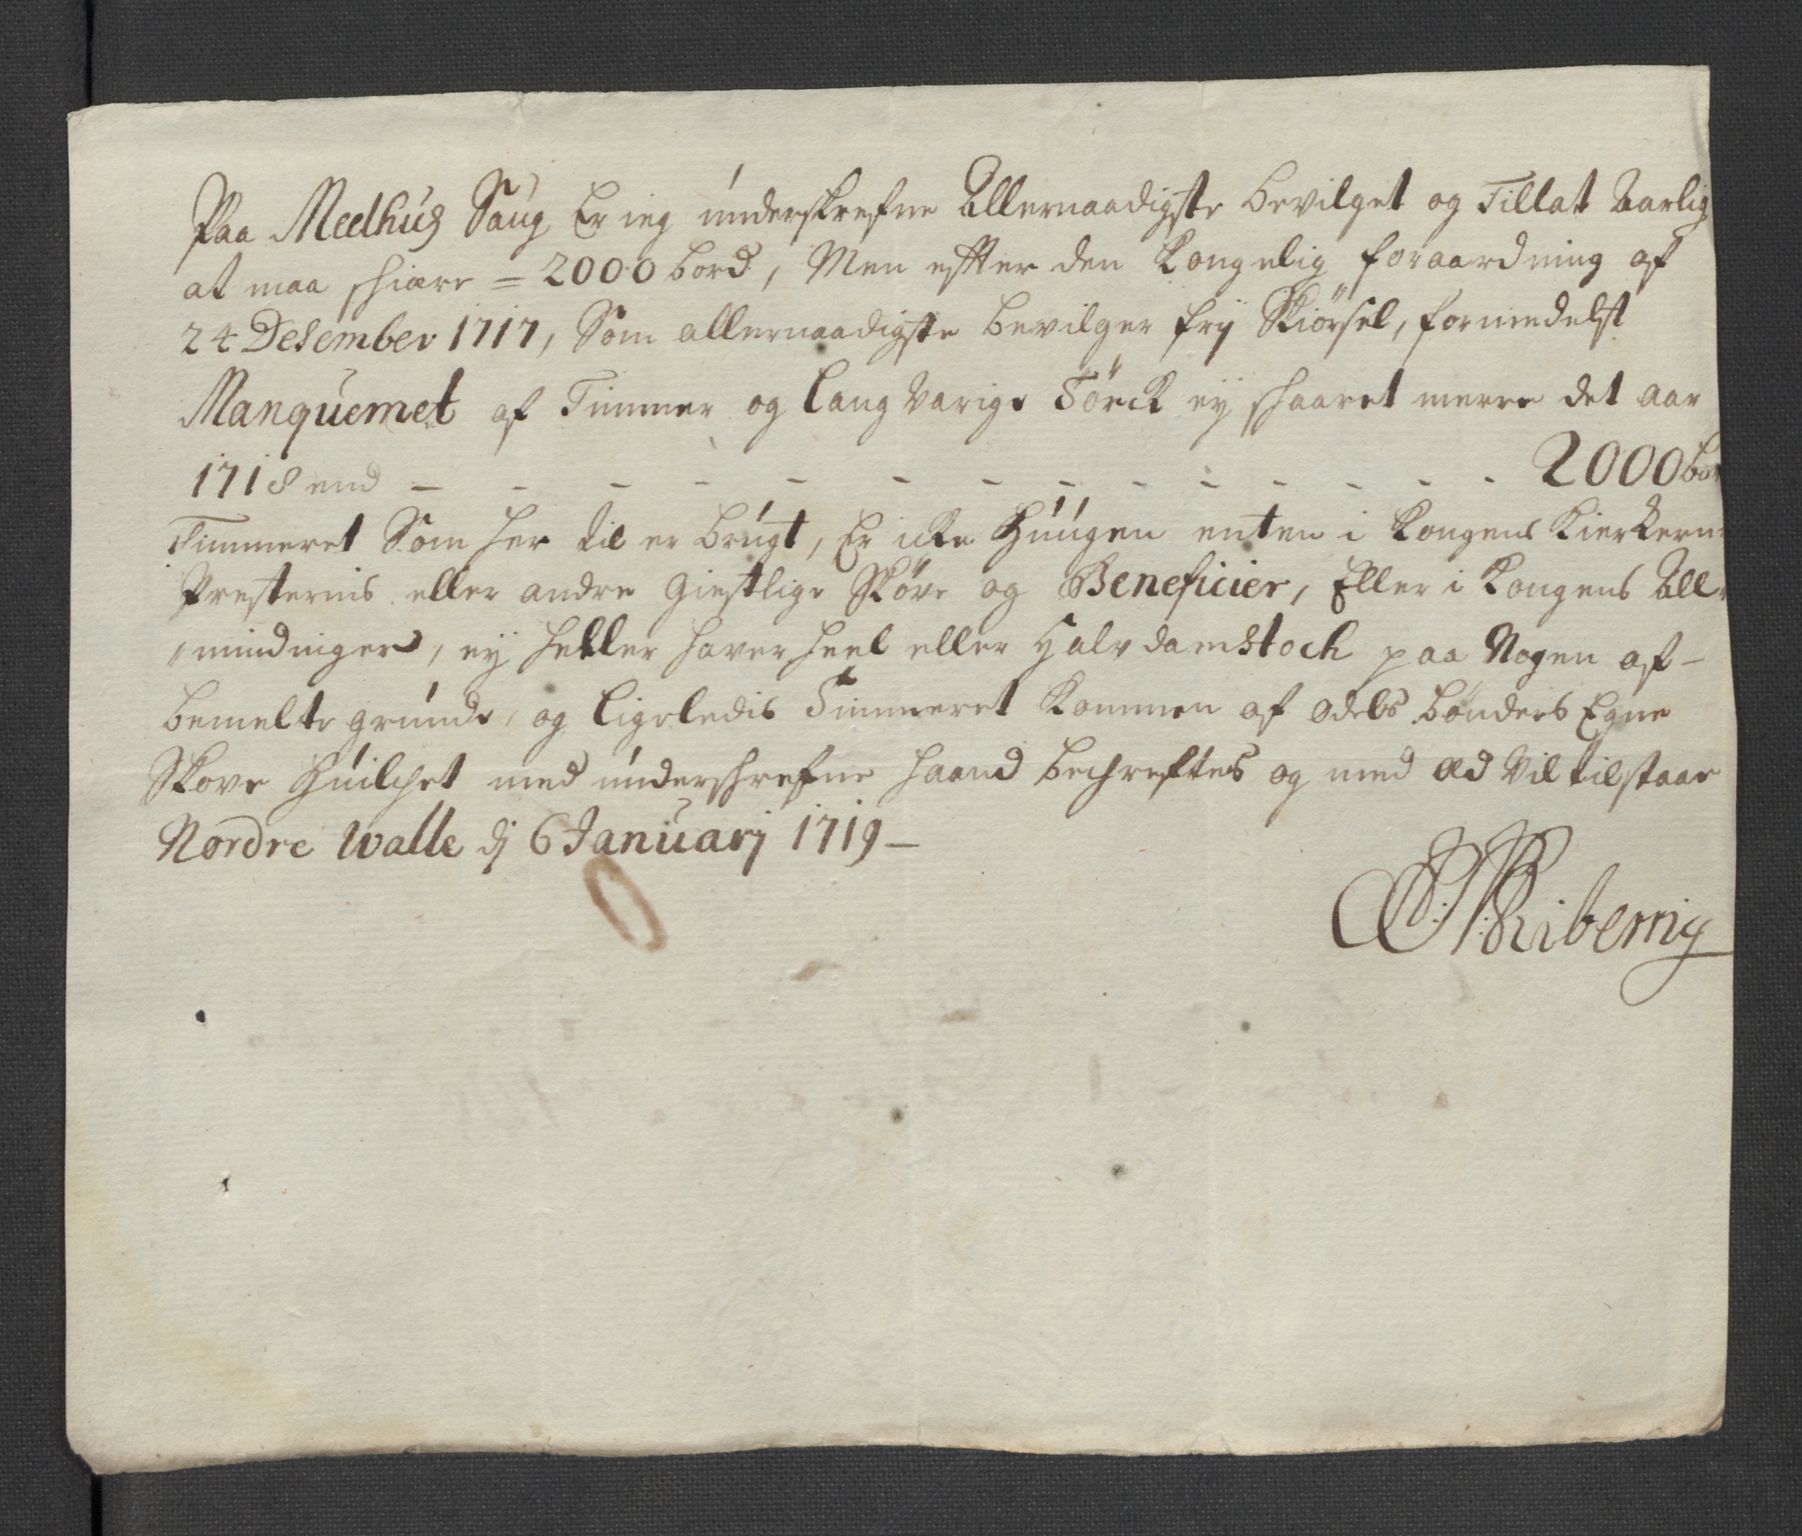 Paa Meelhus Saug Er ieg underskrefne Allernaadigste bevilget og Tillat Aarlig
at maa skiære = 2000 bord, Men effter den Kongelig foraardning af
24 Desember 1717, Som allernaadigste bevilger frij Skiørsel, formedelst
Manquemet af Timmer og langvarige Tørck eÿ skaaret merre det aar
1718 end - - - - - - - - - - - - - - 2000 bor
Timmeret Som her til er brugt, Er icke huugen enten i Kongens Kierkern
Presternis eller andre Giestlige Skove og Beneficier, Eller i Kongens All
mindinger, eÿ heller haver heel eller halv damstoch paa Nogen af-
bemelte grunde, og ligeledis Timmeret Kommen af odels bønders Egne
Skove huilchet med underskrefne haand bechreftes og med Æd vil tilstaae
Nordre Walle dj 6 Januarj 1719 -